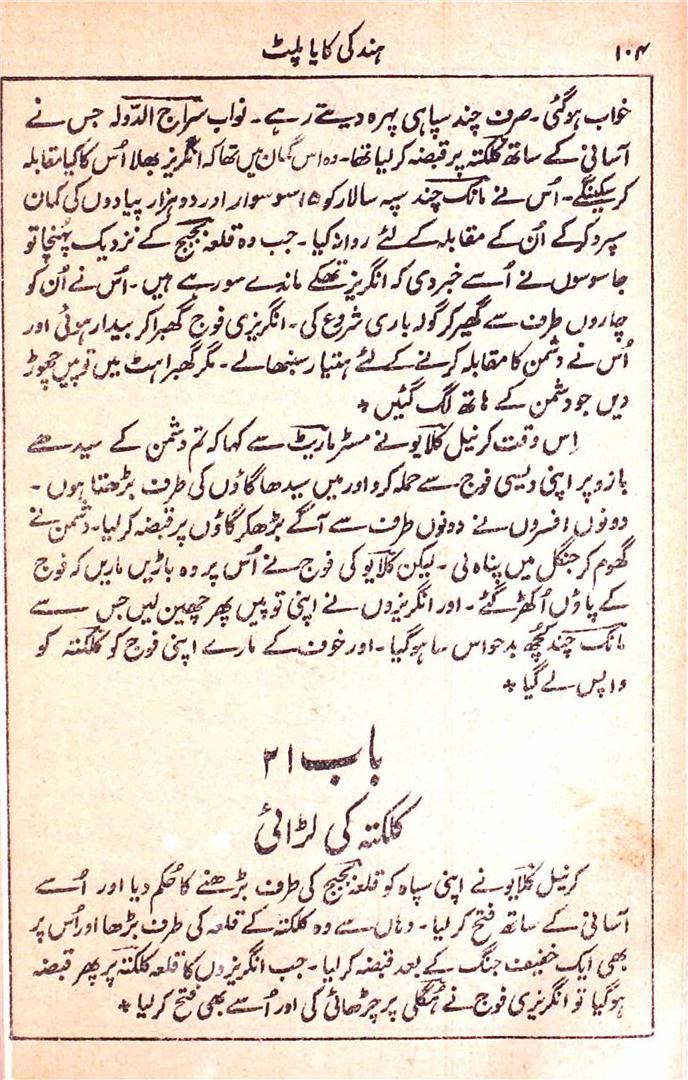 ۱۰۴
ہند کی کایا پلٹ
خواب ہوگئی۔ صرف چند سپاہی پہرہ دیتے رہے۔ نواب سراج الدّولہ جس نے
آسانی کے ساتھ کلکتہ پر قبضہ کر لیا تھا۔ وہ اس گمان میں تھا کہ انگریز بھلا اُس کا کیا مقابلہ
کر سکینگے۔ اُس نے مانک چند سپہ سالار کو ۱۵ سو سوار اور دو ہزار پیادوں کی کمان
سپرد کر کے اُن کے مقابلہ کے لئے روانہ کیا۔ جب وہ قلعہ بجبج کے نزدیک پہنچا تو
جاسوسوں نے اُسے خبر دی کہ انگریز تھکے ماندے سو رہے ہیں۔ اُس نے اُن کو
چاروں طرف سے گھیر کر گولہ باری شروع کی۔ انگریزی فوج گھبرا کر بیدار ہوئی اور
اُس نے دشمن کا مقابلہ کرنے کے لئے ہتیار سنبھالے۔ مگر گھبراہٹ میں توپیں چھوڑ
دیں جو دشمن کے ہاتھ لگ گئیں *
اِس وقت کرنیل کلایو نے مسٹر ماریٹ سے کہا کہ تم دشمن کے سیدھے
بازو پر اپنی دیسی فوج سے حملہ کرو اور میں سیدھا گاؤں کی طرف بڑھتا ہوں۔
دونوں افسروں نے دونوں طرف سے آگے بڑھکر گاؤں پر قبضہ کر لیا۔ دشمن نے
گھوم کر جنگل میں پناہ لی۔ لیکن کلایو کی فوج نے اُس پر وہ باڑیں ماریں کہ فوج
کے پاؤں اُکھڑ گئے۔ اور انگریزوں نے اپنی توپیں پھر چھین لیں جس سے
مانک چند کچُھ بدحواس سا ہوگیا۔ اور خوف کے مارے اپنی فوج کو کلکتہ کو
واپس لے گیا *
باب ۳۱
کلکتہ کی لڑائی
کرنیل کلایو نے اپنی سپاہ کو قلعہ بجبج کی طرف بڑھنے کا حُکم دیا اور اُسے
آسانی کے ساتھ فتح کر لیا۔ وہاں سے وہ کلکتہ کے قلعہ کی طرف بڑھا اور اُس پر
بھی ایک خفیف جنگ کے بعد قبضہ کر لیا۔ جب انگریزوں کا قلعہ کلکتہ پر پھر قبضہ
ہوگیا تو انگریزی فوج نے ہُگلی پر چڑھائی کی اور اُسے بھی فتح کر لیا *